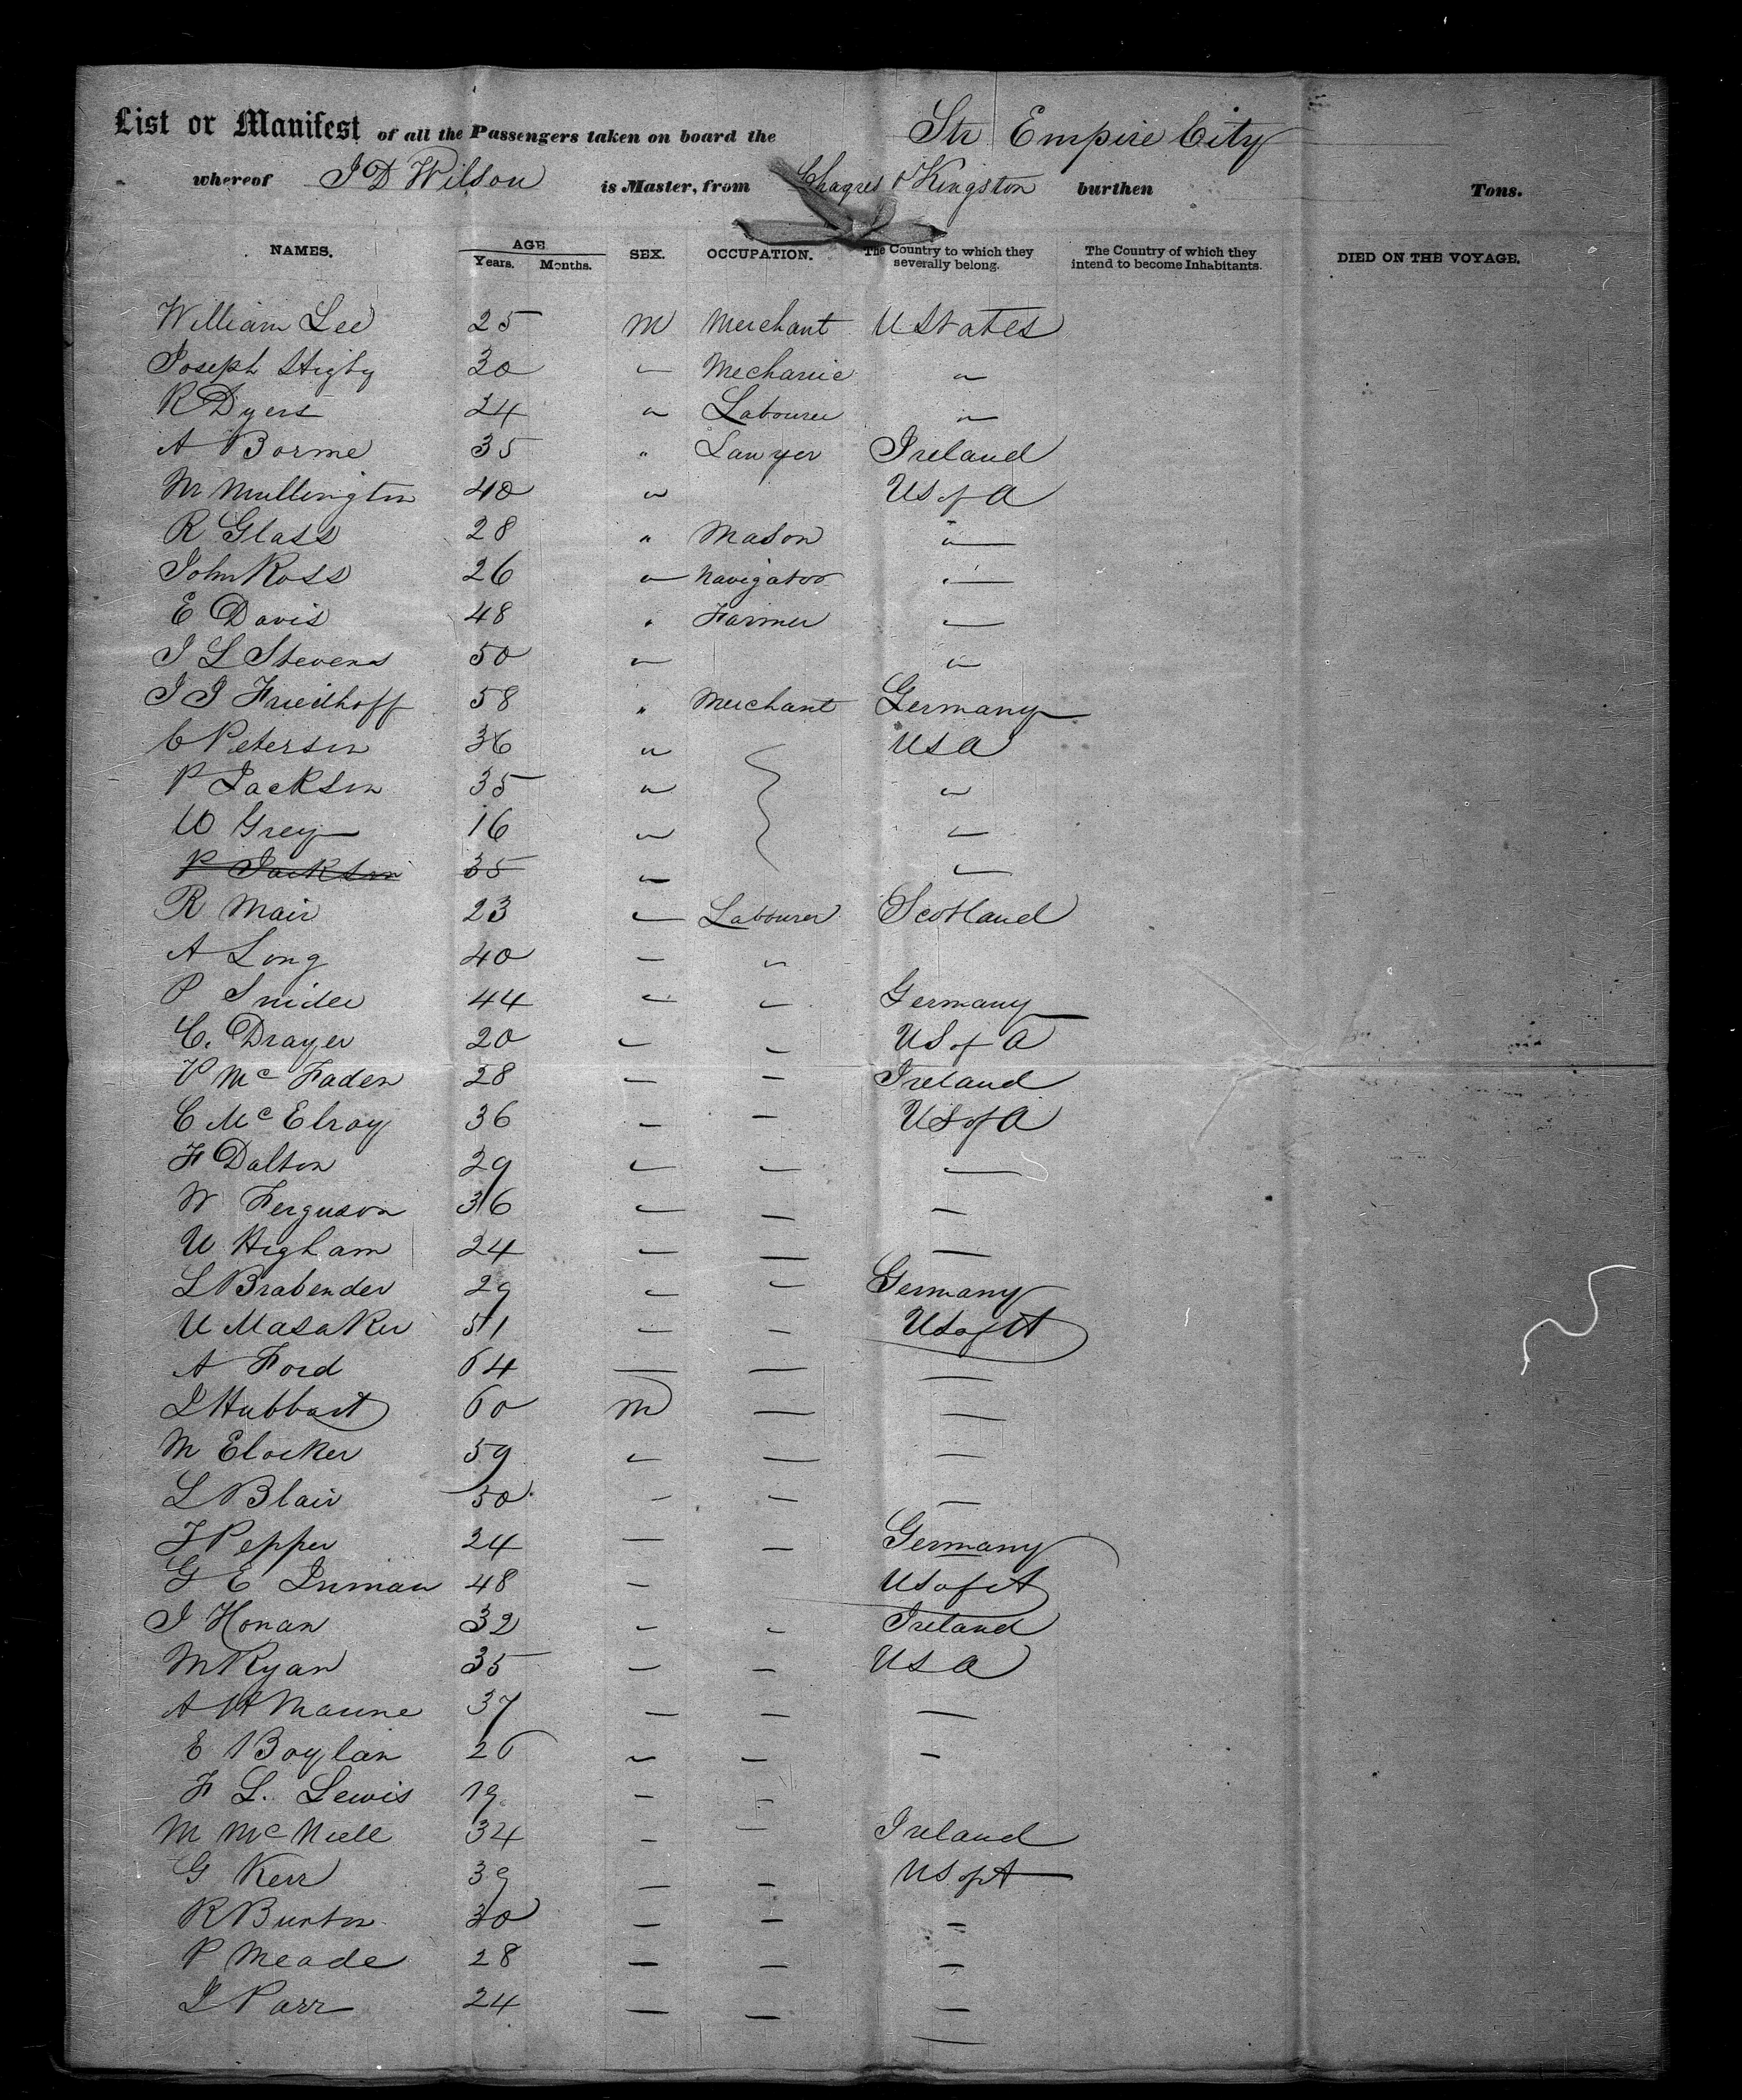 List or Manifest of all the Passengers taken on board the Str Empire City
whereof J D Wilson is Master, from Chagres & Kingston burthen Tons.
NAMES. AGE Years. Months. SEX. OCCUPATION. The Country to which they severally belong. The Country of which they intend to become Inhabitants. DIED ON THE VOYAGE.
William Lee 25 M Merchant U States
Joseph Higby 30 " Mechanic "
R Dyers 24 " Labourer "
A Borme 35 " Lawyer Ireland
M Mullington 40 " US of A
R Glass 28 " Mason "
John Ross 26 " Navigator "
E Davis 48 " Farmer "
J L Stevens 50 " "
J J Friedhoff 58 " Merchant Germany
C Peterson 36 " USA
P Jackson 35 " "
W Grey 16 " "
P Jackson 35 " "
R Mair 23 " Labourer Scotland
A Long 40 " "
P Snider 44 " " Germany
C. Drayer 20 " " US of A
P Mc Faden 28 " " Ireland
C Mc Elroy 36 " " US of A
F Dalton 29 " " "
W Ferguson 36 " " "
W Higham 24 " " "
L Brabender 29 " " Germany
W Masaker 51 " " US of A
A Ford 64 " " "
J Hubbart 60 M " "
M Elocker 59 " " "
L Blair 50 " " "
J Pepper 24 " " Germany
G E Inman 48 " US of A
J Honan 32 " " Ireland
M Ryan 35 " " USA
A H Maune 37 " " "
E Boylan 26 " " "
F L. Lewis 19 " "
M Mc Niell 34 " " Ireland
G Kerr 39 " " US of A
R Burton 30 " " "
P Meade 28 " " "
J Parr 24 " " "